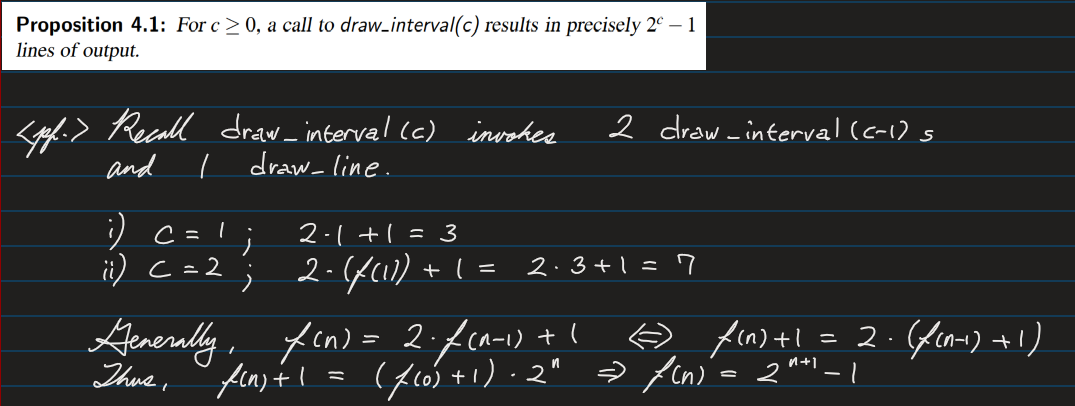 Proposition 4.1: For c ≥ 0, a call to draw_interval(c) results in precisely 2^c − 1
lines of output.
<pf.> Recall draw_interval (c) invokes 2 draw_interval (c-1) s
and 1 draw_line.
i) C = 1 ; 2·1 + 1 = 3
ii) C = 2 ; 2·(f(1)) + 1 = 2·3 + 1 = 7
Generally, f(n) = 2·f(n-1) + 1 ⇔ f(n)+1 = 2·(f(n-1)+1)
Thus, f(n)+1 = (f(0)+1)·2^n ⇒ f(n) = 2^{n+1} - 1